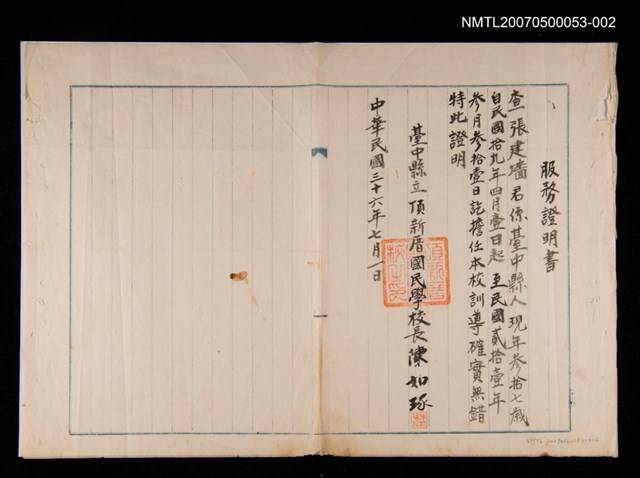 NMTL20070500053-002
服務證明書
查張建墻君係臺中縣人現年參拾七歲
自民國拾九年四月壹日起至民國貳拾壹年
參月參拾壹日訖擔任本校訓導確實無錯
特此證明
臺中縣立頂新厝國民學校長陳如琢
中華民國三十六年七月一日